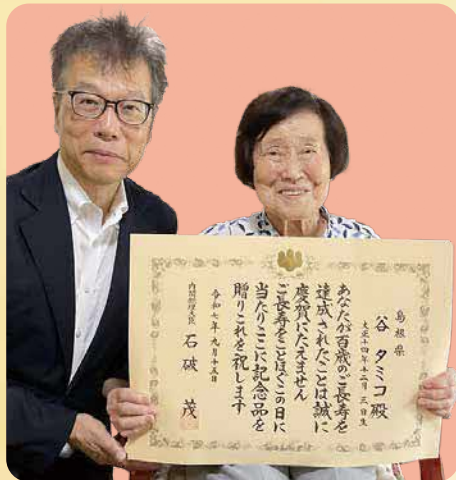 島根県
谷 タミコ殿
大正十四年十二月三日生
あなたが百歳のご長寿を
達成されたことは誠に
慶賀にたえません
ご長寿をことほぐこの日に
当たりここに記念品を
贈りこれを祝します
令和七年九月十五日
内閣総理大臣 石破 茂